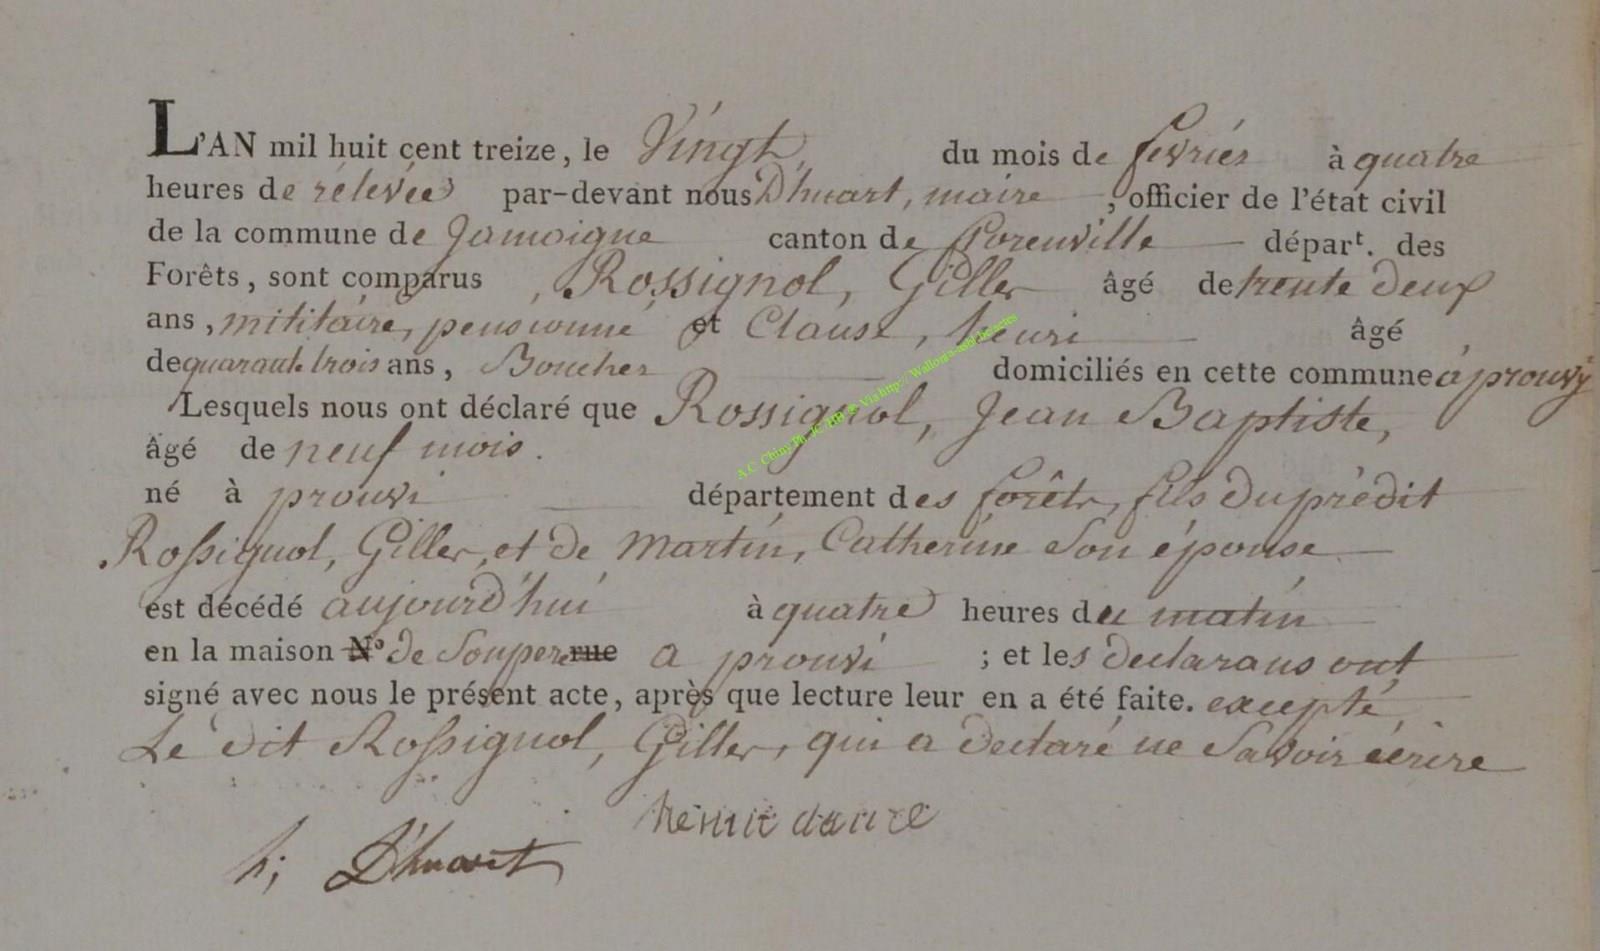 L'AN mil huit cent treize, le Vingt du mois de fevrier à quatre
heures de rélevéé par-devant nous D'huart, maire, officier de l'état civil
de la commune de Jamoigne canton de florenville départ. des
Forêts, sont comparus, Rossignol, Gilles âgé de trente deux
ans, militaire, pensionné et Clause, henri âgé
de quarante trois ans, Boucher domiciliés en cette commune à prouvÿ
Lesquels nous ont déclaré que Rossignol, Jean Baptiste,
âgé de neuf mois.
né à prouvi département des forêts, fils du prédit
Rossignol, Gilles, et de Martin, Catherine son épouse
est décédé aujourd'hui à quatre heures du matin
en la maison N° de son pere rue a prouvi ; et les declarans ont
signé avec nous le présent acte, après que lecture leur en a été faite. excepté
Le dit Rossignol, Gilles, qui a declaré ne savoir écrire
h; D'huart
A.C. Chiny Via http:// Wallonia-asbl.be/actes